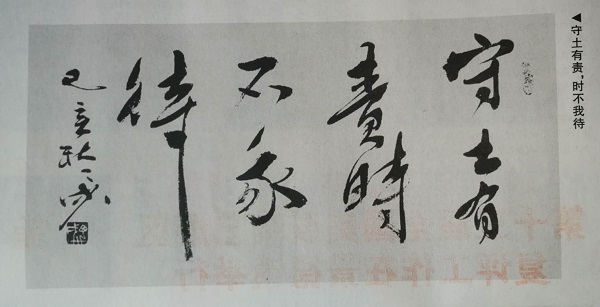 ◀守土有责，时不我待
守土有
責時
不我
待
己亥秋